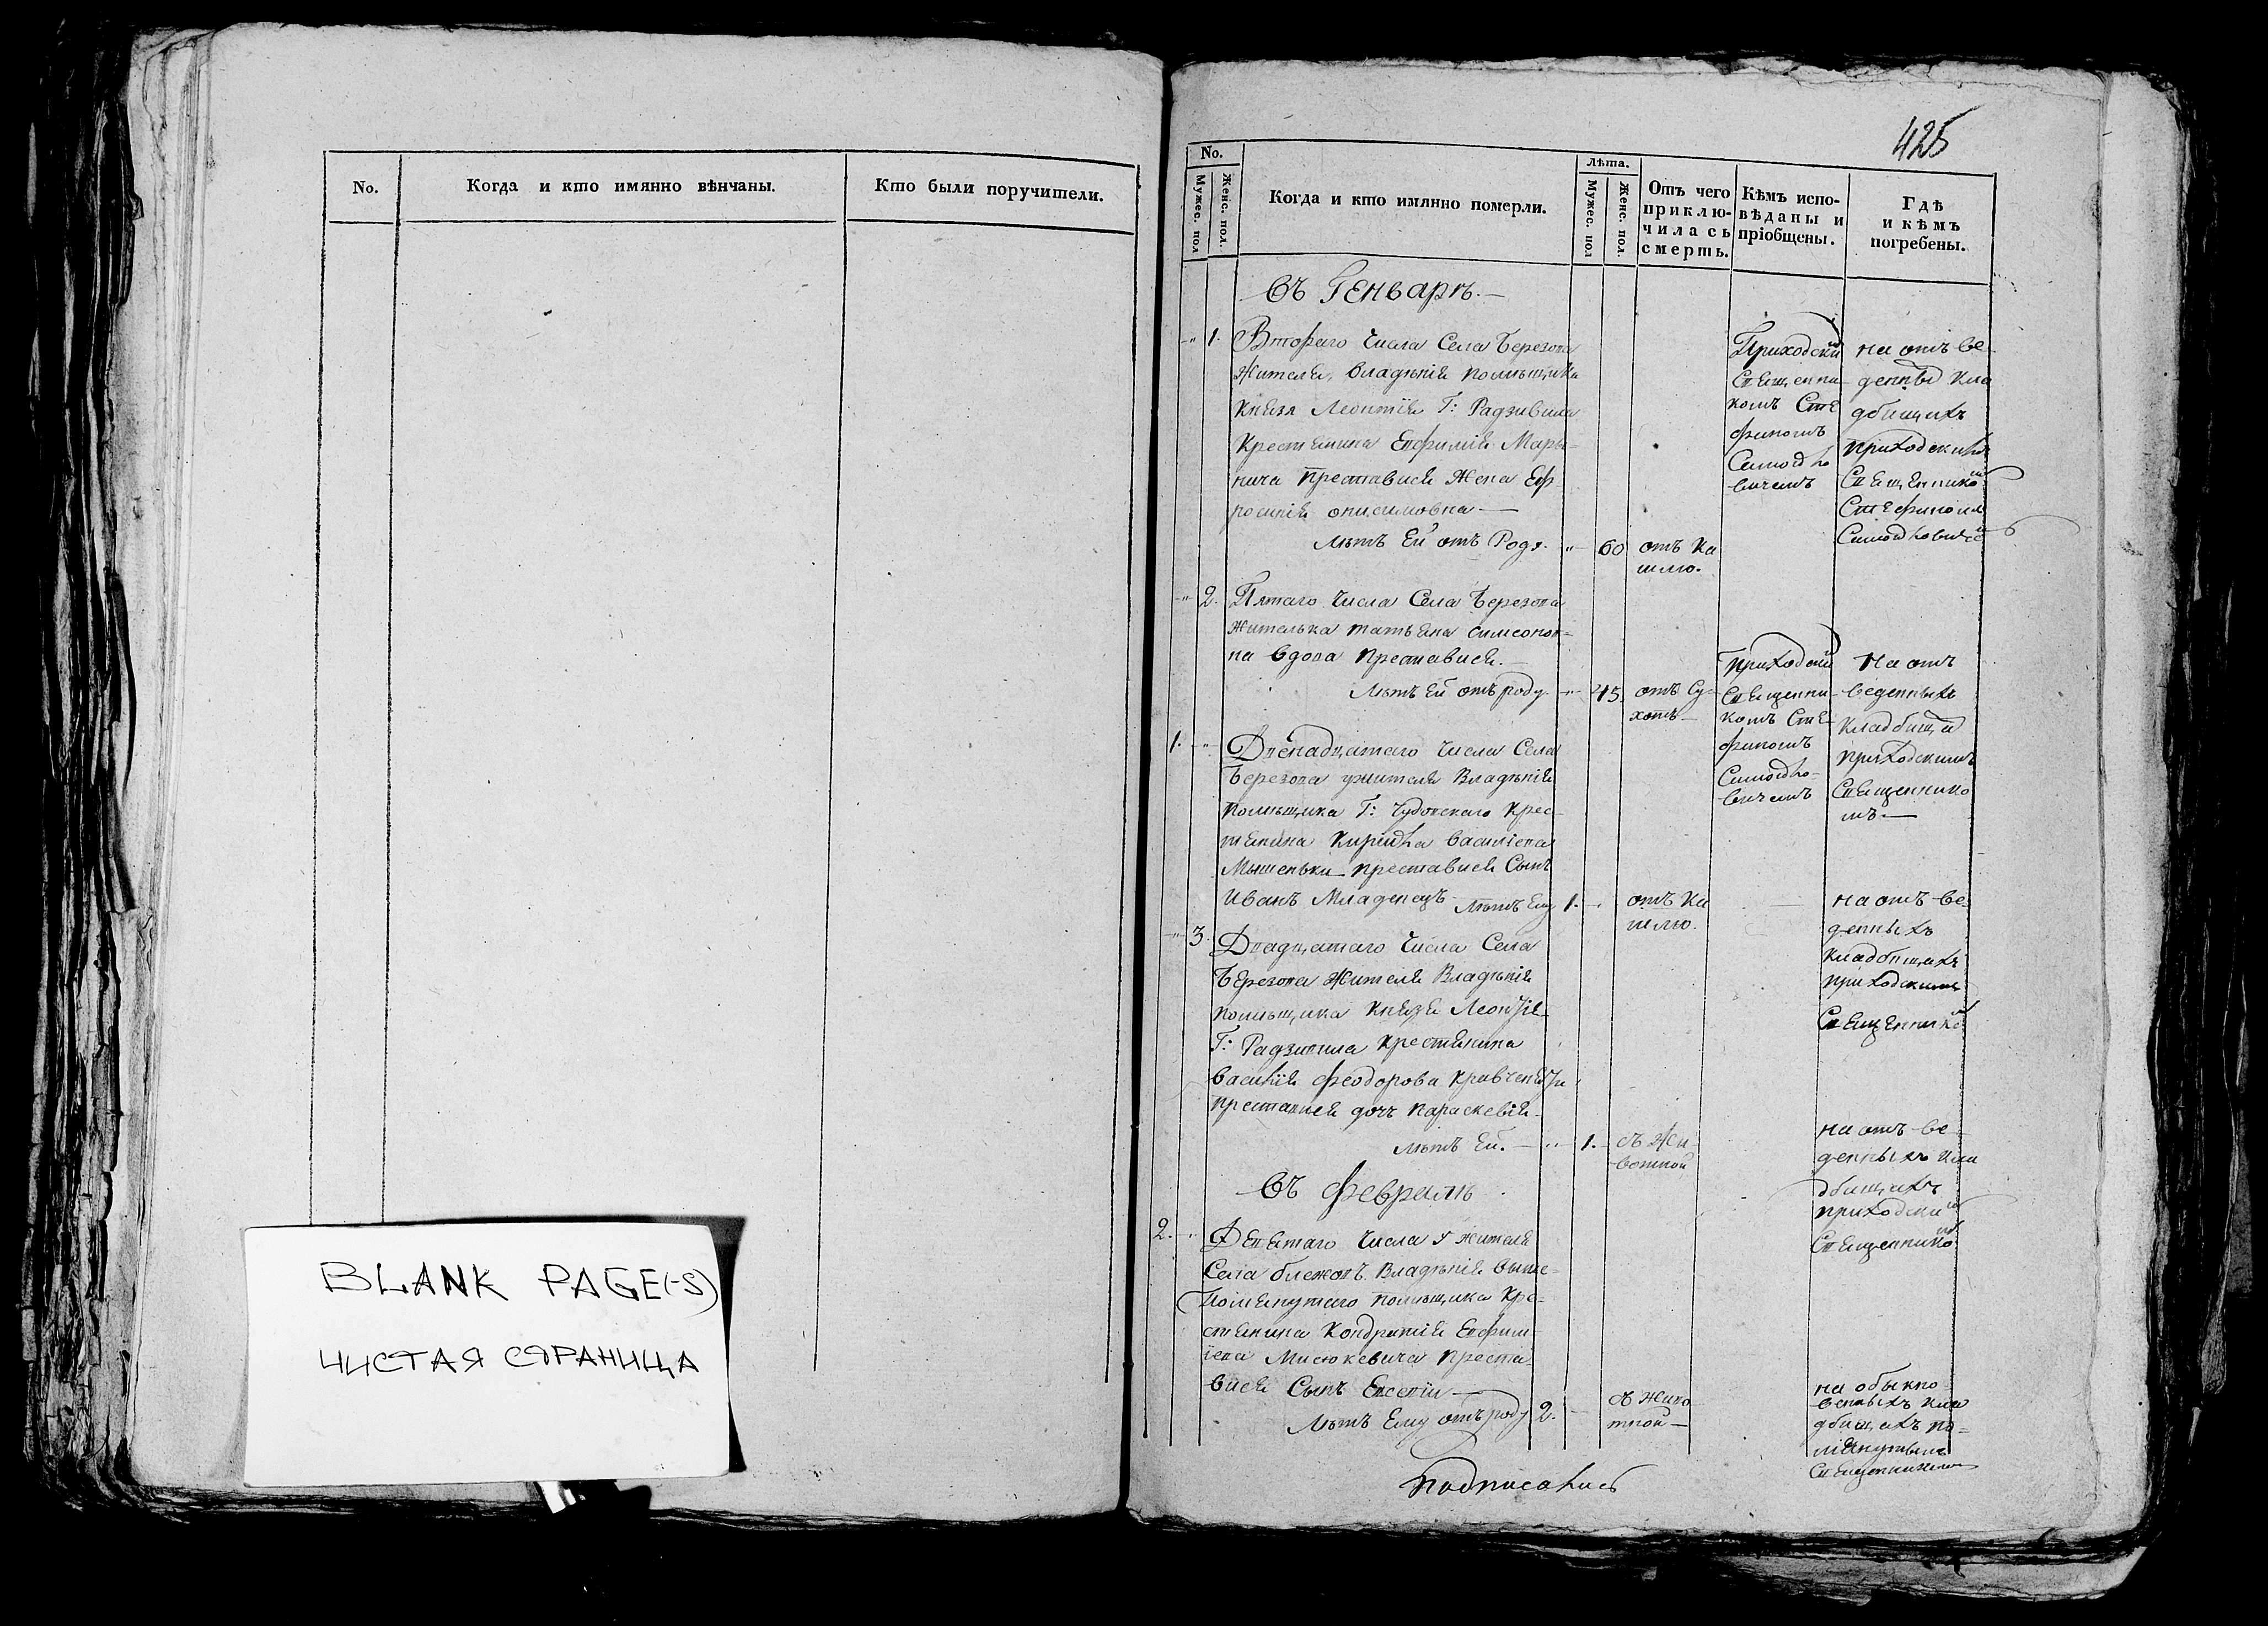 No.
Когда и кто имянно вѣнчаны.
Кто были поручители.
BLANK PAGE(-S)
ЧИСТАЯ СТРАНИЦА
425
No.
Мужес. пол
Женс. пол.
Когда и кто имянно померли.
Лѣта.
Мужес. пол
Женс. пол.
Отъ чего
приклю-
чилась
смерть.
Кѣмъ испо-
вѣданы и
пріобщены.
Гдѣ
и кѣмъ
погребены.
Въ Генварѣ.
" 1. Втораго числа Села Березова
жителя, владѣнія помѣщика
Князя Леонтія Г: Радзивила
крестянина Евфимія Мары-
нича преставися жена Еф
росинія онисимовна
Лѣтъ Ей отъ Роду. " 60 отъ ка
шлю.
Приходскимъ
Священни
комъ Сте
фаномъ
вичемъ
на отъ ве
денных кла
дбищахъ
приходскимъ
Священникомъ
Стефаномъ
" 2. Пятаго числа Села Березова
жителька татьяна симеонов-
на вдова преставися.
Лѣтъ ей отъ роду. " 45. отъ Су-
хотъ
приходским
Священни-
комъ Сте-
фаномъ
вичемъ
На отъ
веденныхъ
кладбища
приходскимъ
Священнико
мъ
1. " Двенадцатаго числа Села
Березова жителя Владѣнія
помѣщика Г: Чудовскаго крес-
тянина Кирилла василіева
Мышеньки преставися Сынъ
Иванъ Младенецъ Лѣтъ Ему 1. отъ ка
шлю.
на отъ ве-
денныхъ
кладбищахъ
приходскимъ
Священником
" 3. Двадцатаго числа Села
Березова жителя Владѣнія
помѣщика князя Леонтія
Г: Радзивила крестянина
василія феодорова
преставися дочь параскевія.
Лѣтъ Ей. " 1. съ жи-
вотной
на отъ ве-
денныхъ кла
дбищахъ
приходским
Священником
Въ Февралѣ
2. " Девятаго числа жителя
Села Владѣнія выше-
помянутаго помѣщика кре-
стянина Кондратія Евфим-
іева Мисюкевича преста
вися Сынъ Евсевій
Лѣтъ Ему отъ роду 2. съ живо
тной
на обыкно
венныхъ кла
дбищахъ по-
мянутымъ
Священникомъ
подписались